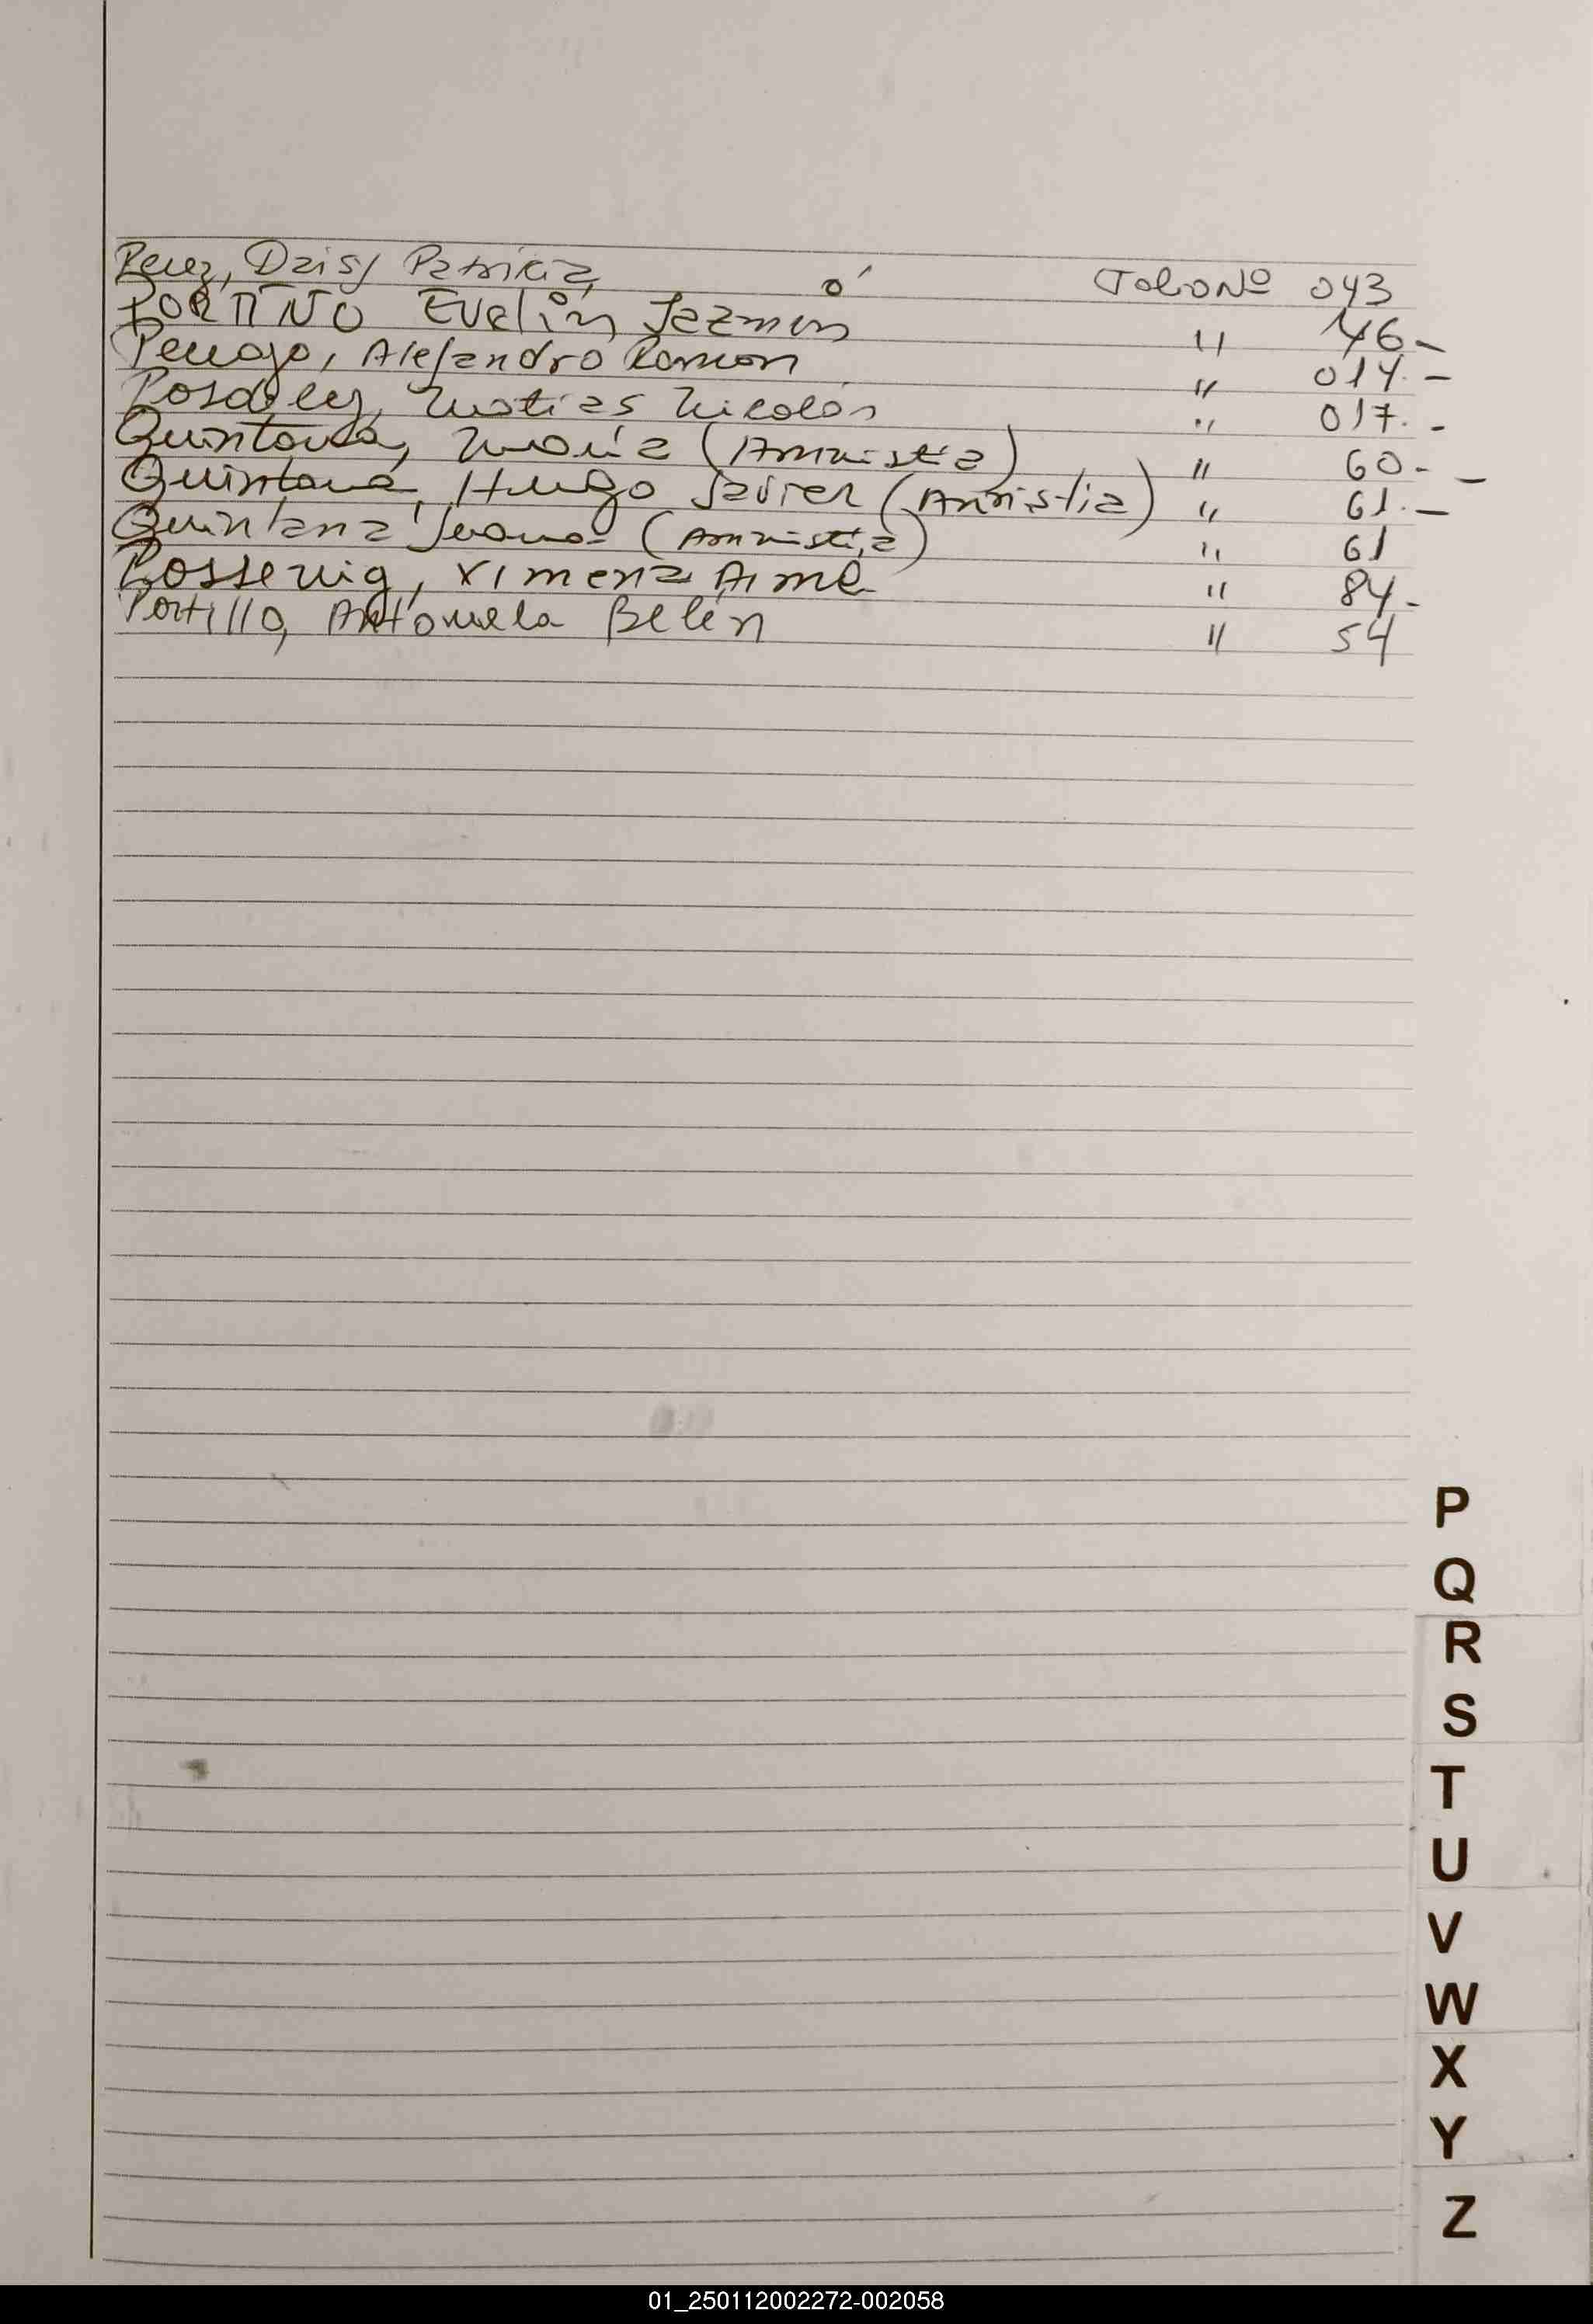 Perez, Daisy Patricia ó Folio Nº 043
PORTIÑO Evelin Jazmin " 46-
Penayo, Alejandro Ramon " 014.-
Posdeley, Matias Nicolás " 017.-
Quintana, María (Amnistia) " 60.-
Quintana, Hugo Javier (Amnistia) " 61.-
Quintana Juana (Amnistia) " 61
Possenig, Ximena Aime " 84-
Portillo, Antonela Belén " 54
P
Q
R
S
T
U
V
W
X
Y
Z
01_250112002272-002058